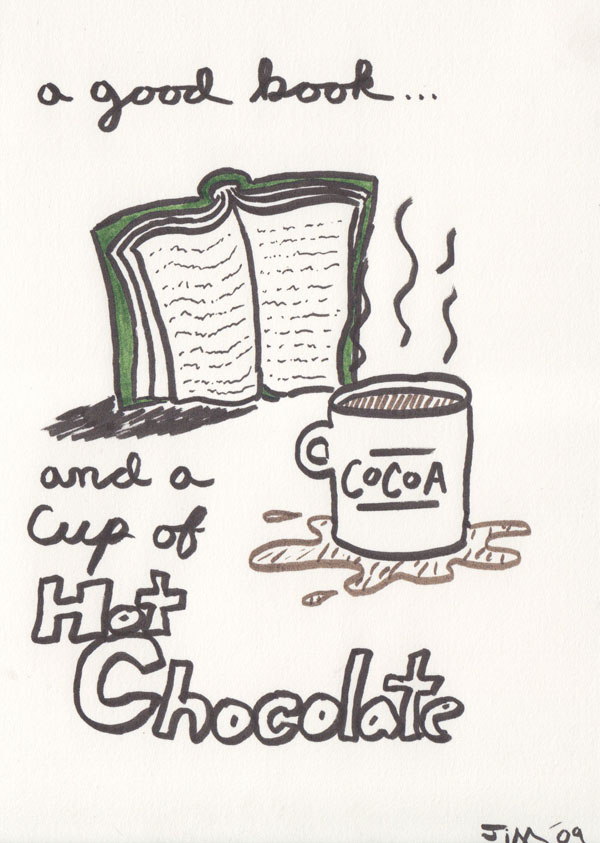 a good book...
COCOA
and a
Cup of
Hot
Chocolate
Jim '09